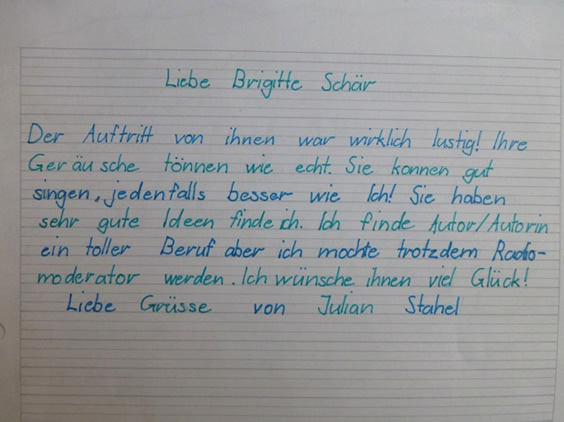 Liebe Brigitte Schär
Der Auftritt von ihnen war wirklich lustig! Ihre
Geräusche tönnen wie echt. Sie konnen gut
singen, jedenfalls besser wie Ich! Sie haben
sehr gute Ideen finde ich. Ich finde Autor/Autorin
ein toller Beruf aber ich mochte trotzdem Radio-
moderator werden. Ich wünsche ihnen viel Glück!
Liebe Grüsse von Julian Stahel